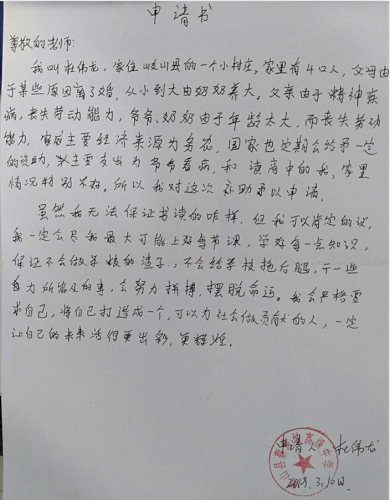 申请书
尊敬的老师:
我叫杜伟龙,家住岐山县的一个小村庄。家里有4口人,父母由
于某些原因离了婚,从小到大由奶奶养大。父亲由于精神疾
病,丧失劳动能力,爷爷、奶奶由于年龄太大,而丧失劳动
能力,家庭主要经济来源为务农,国家也定期会给予一定
的资助,钱主要支出为爷爷看病,和读高中的我,家里
情况特别不好,所以我对这次补助予以申请。
虽然我无法保证书读的咋样,但我可以肯定的说,
我一定会尽我最大可能上好每节课,学好每一点知识,
保证不会做学校的渣子,不会给学校拖后腿,干一些
自力所能及的事,会努力拼搏,摆脱命运。我会严格要
求自己,将自己打造成一个,可以为社会做贡献的人,一定
让自己的未来活得更出彩,更辉煌。
申请人:杜伟龙
2019.3.16日